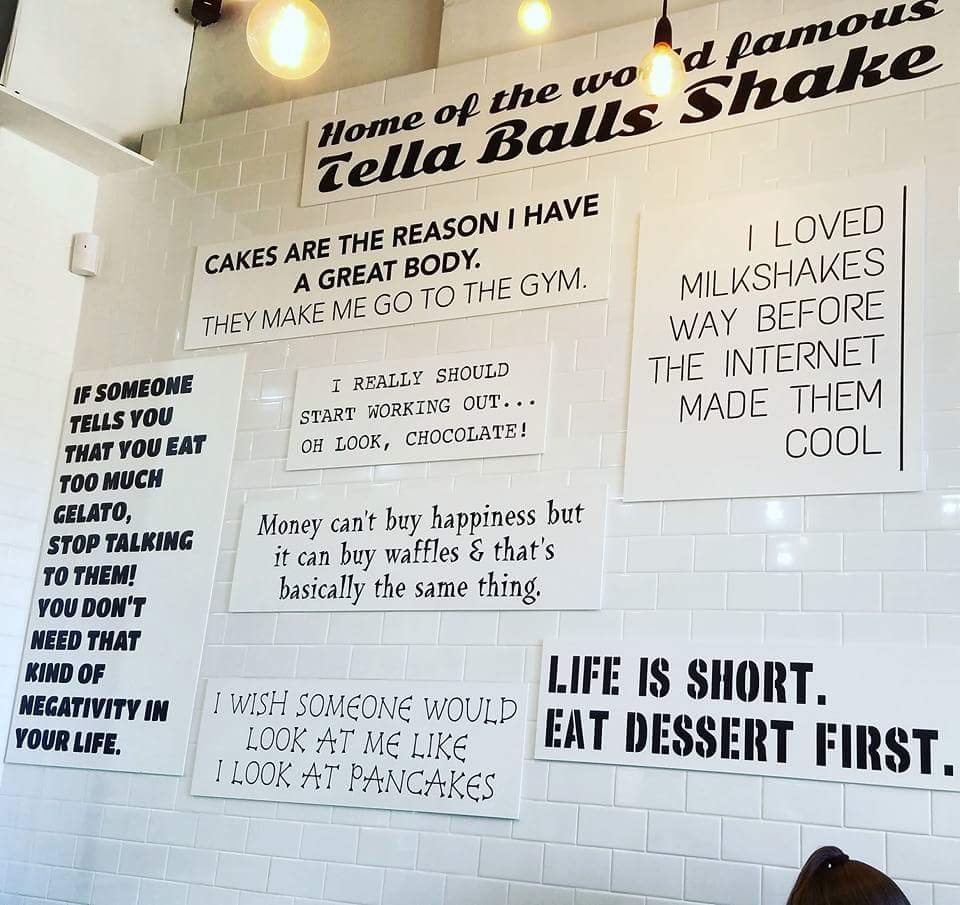 Home of the world famous
Tella Balls Shake
CAKES ARE THE REASON I HAVE
A GREAT BODY.
THEY MAKE ME GO TO THE GYM.
I LOVED
MILKSHAKES
WAY BEFORE
THE INTERNET
MADE THEM
COOL
IF SOMEONE
TELLS YOU
THAT YOU EAT
TOO MUCH
GELATO,
STOP TALKING
TO THEM!
YOU DON'T
NEED THAT
KIND OF
NEGATIVITY IN
YOUR LIFE.
I REALLY SHOULD
START WORKING OUT...
OH LOOK, CHOCOLATE!
Money can't buy happiness but
it can buy waffles & that's
basically the same thing.
I WISH SOMEONE WOULD
LOOK AT ME LIKE
I LOOK AT PANCAKES
LIFE IS SHORT.
EAT DESSERT FIRST.